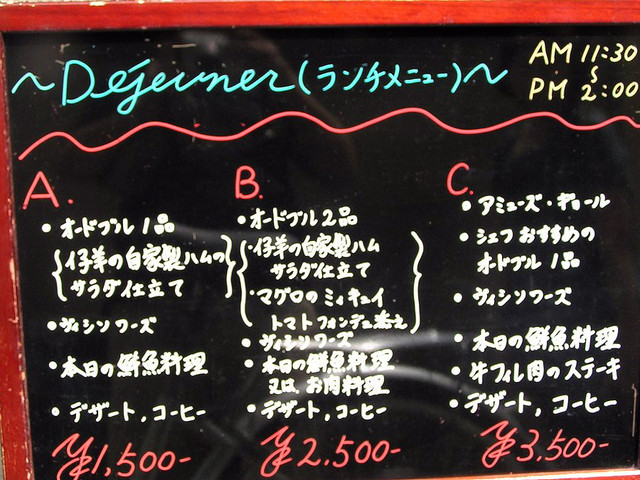 ～Déjeuner(ランチメニュー)～
AM 11:30
～
PM 2:00
A.
・オードブル1品
{仔羊の自家製ハムの
サラダ仕立て}
・ヴィシソワーズ
・本日の鮮魚料理
・デザート,コーヒー
¥1,500-
B.
・オードブル2品
{・仔羊の自家製ハム
サラダ仕立て
・マグロのミィキュイ
トマトフォンデュ添え}
・ヴィシソワーズ
・本日の鮮魚料理
又は、お肉料理
・デザート,コーヒー
¥2,500-
C.
・アミューズ・ギュール
・シェフおすすめの
オードブル1品
・ヴィシソワーズ
・本日の鮮魚料理
・牛フィレ肉のステーキ
・デザート,コーヒー
¥3,500-